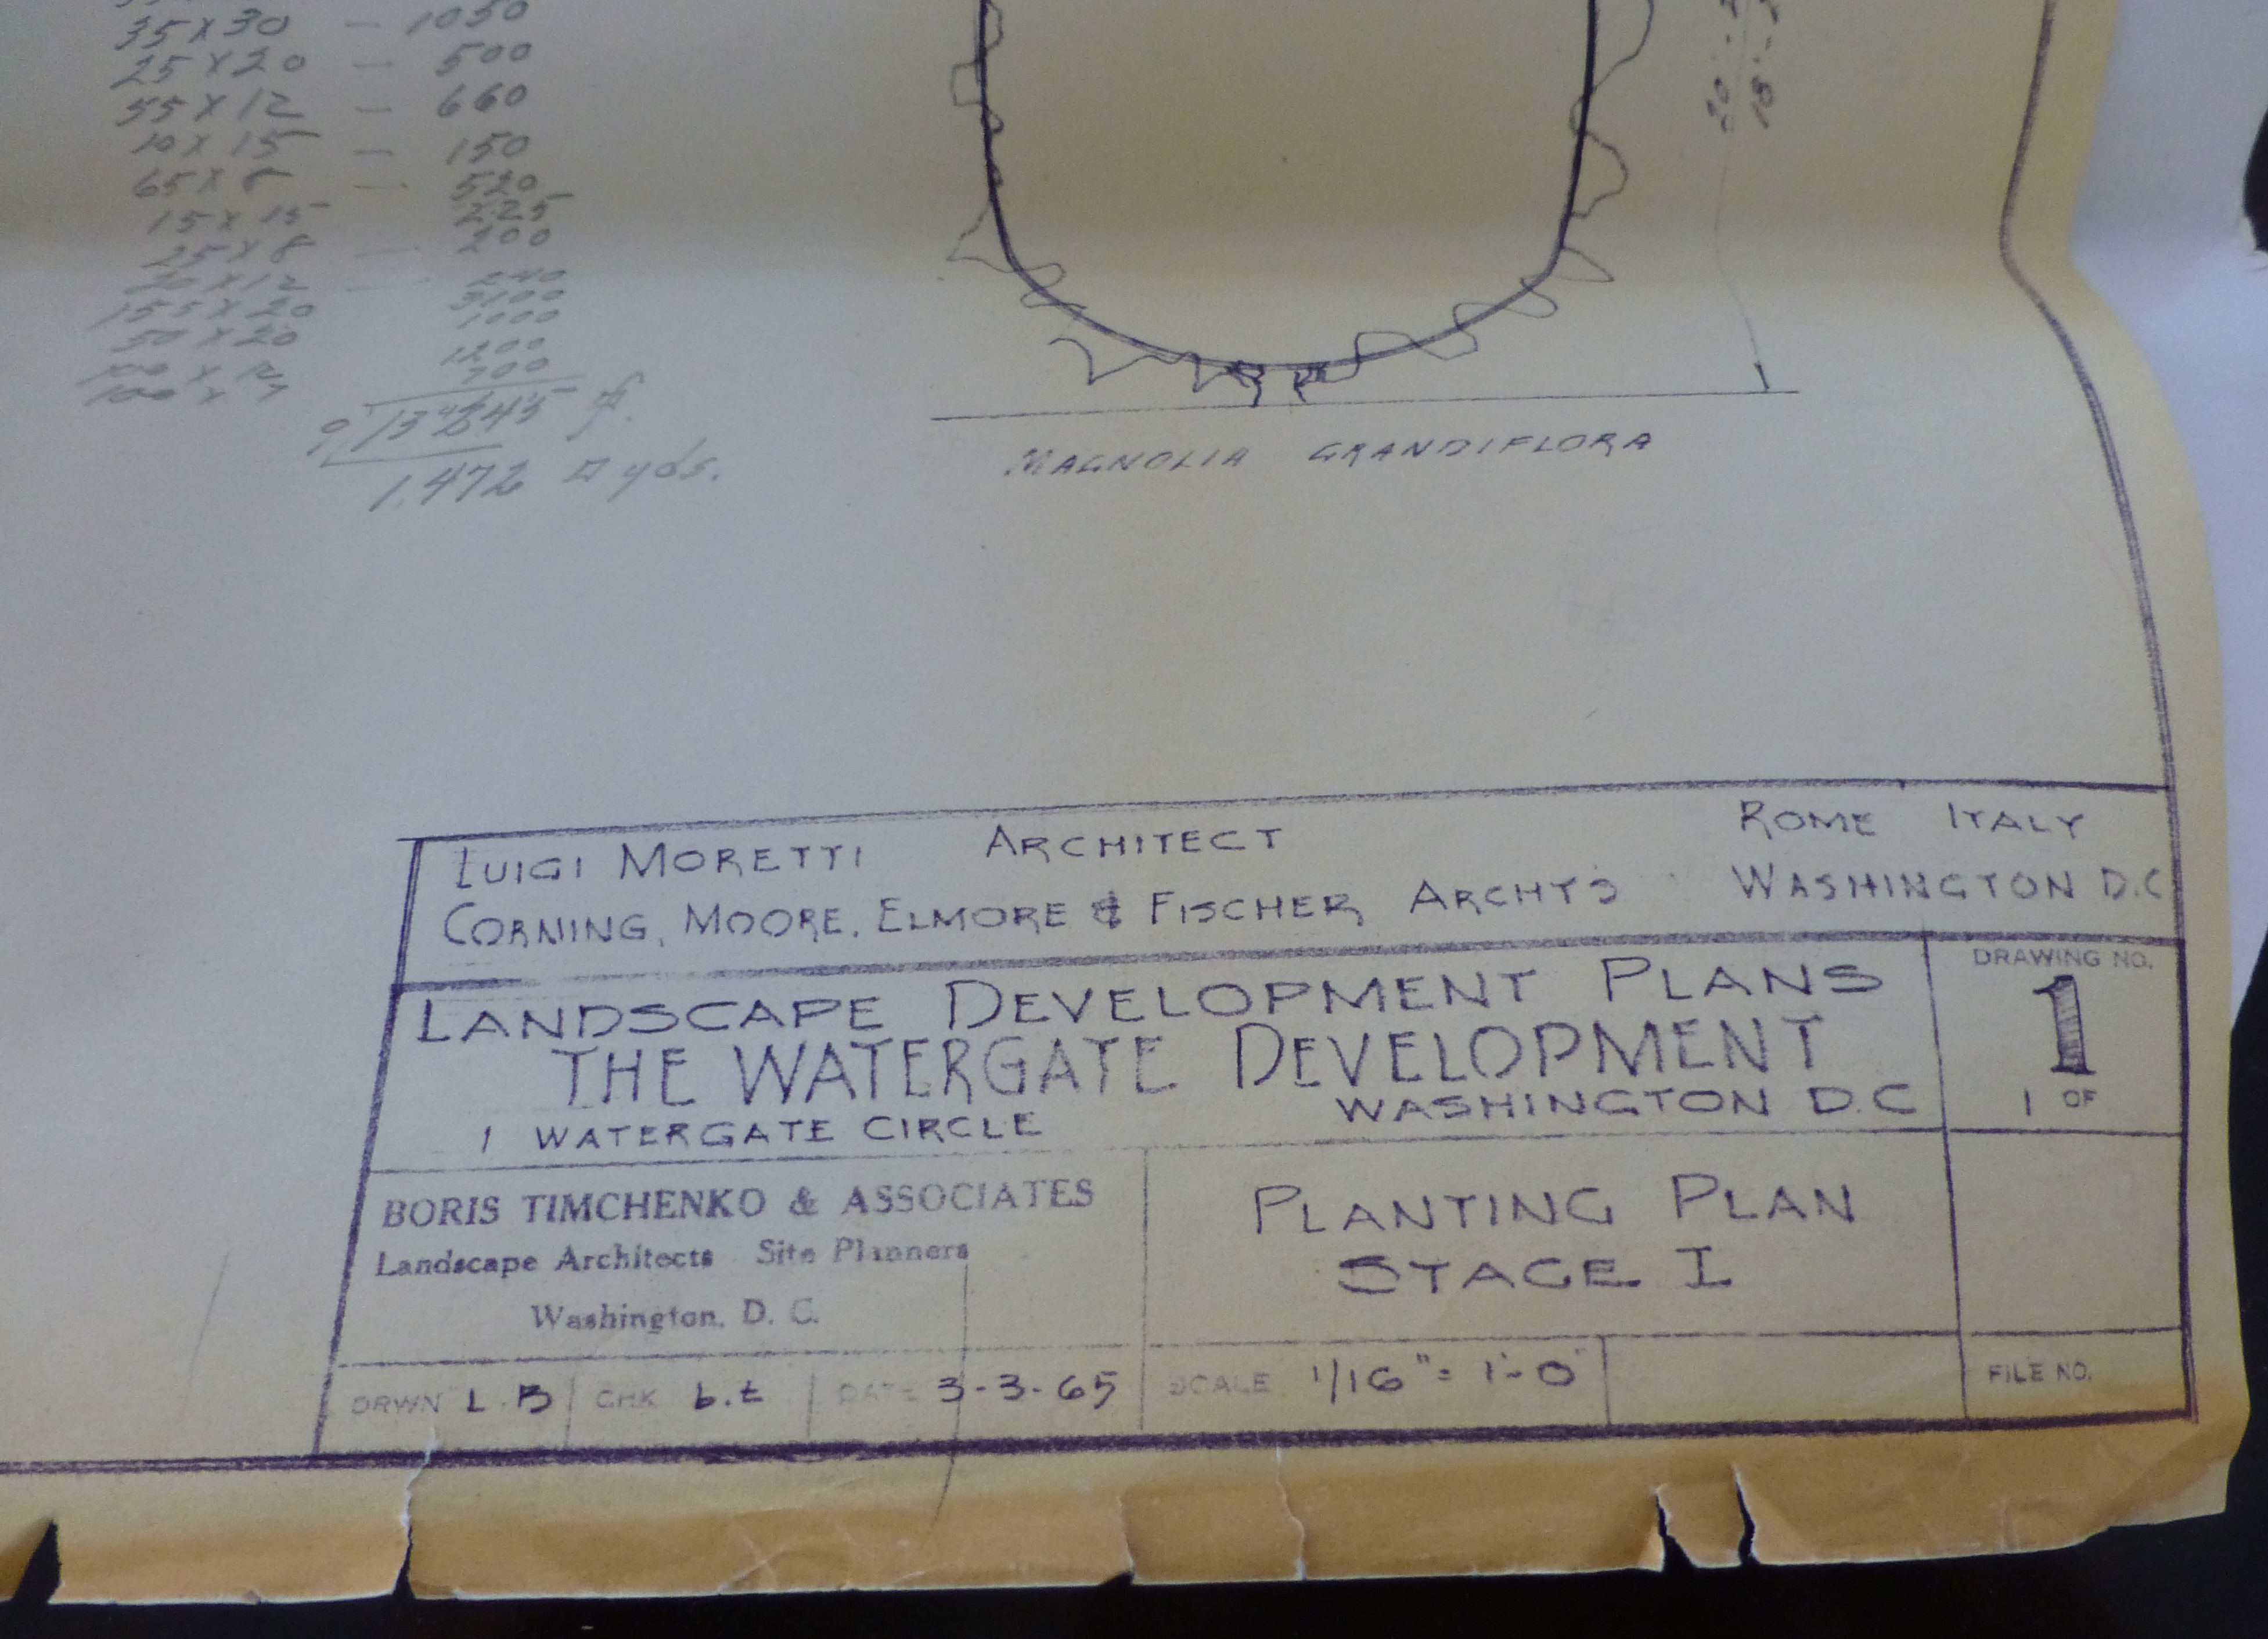 35 x 30 — 1050
25 x 20 — 500
55 x 12 — 660
10 x 15 — 150
65 x 8 — 520
15 x 15 225
25 x 8 — 200
20 x 12 — 240
155 x 20 3100
50 x 20 1000
100 x 12 1200
100 x 7 700
9 13245
1,472 □ yds.
20
18
MAGNOLIA GRANDIFLORA
LUIGI MORETTI ARCHITECT ROME ITALY
CORNING, MOORE, ELMORE & FISCHER ARCHTS WASHINGTON D.C
LANDSCAPE DEVELOPMENT PLANS
THE WATERGATE DEVELOPMENT
1 WATERGATE CIRCLE WASHINGTON D.C
DRAWING NO.
1
1 OF
BORIS TIMCHENKO & ASSOCIATES
Landscape Architects Site Planners
Washington, D. C.
PLANTING PLAN
STAGE I
DRWN L.B CHK b.t DATE 3-3-65 SCALE 1/16" = 1'-0"
FILE NO.